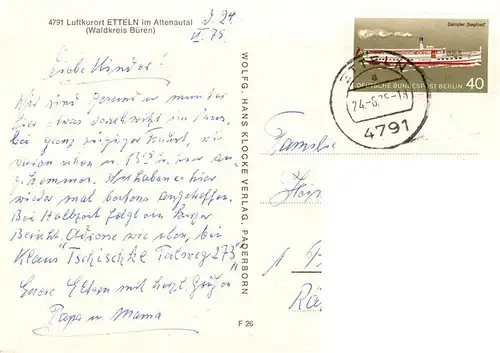 4791 Luftkurort ETTELN im Altenautal
(Waldkreis Büren)
d. 24
VI. 75.
Liebe Kinder!
Wir sind gesund u. munter
hier etwas
bei ganz ruhiger Fahrt, wir
waren schon u. 13 15 hier an-
gekommen. Wir haben es hier
wieder mal bestens angetroffen.
Bei Halbzeit folgt ein
Bericht. Adresse wie oben, bei
Klaus "Tschischke Talweg 273"
Eure Eltern mit herzl. Grüßen
Papa u. Mama
WOLFG. HANS KLOCKE VERLAG, PADERBORN
F 26
Dampfer Siegfried
DEUTSCHE BUNDESPOST BERLIN 40
ETTELN
a
24.-6.75-18
4791
Familie